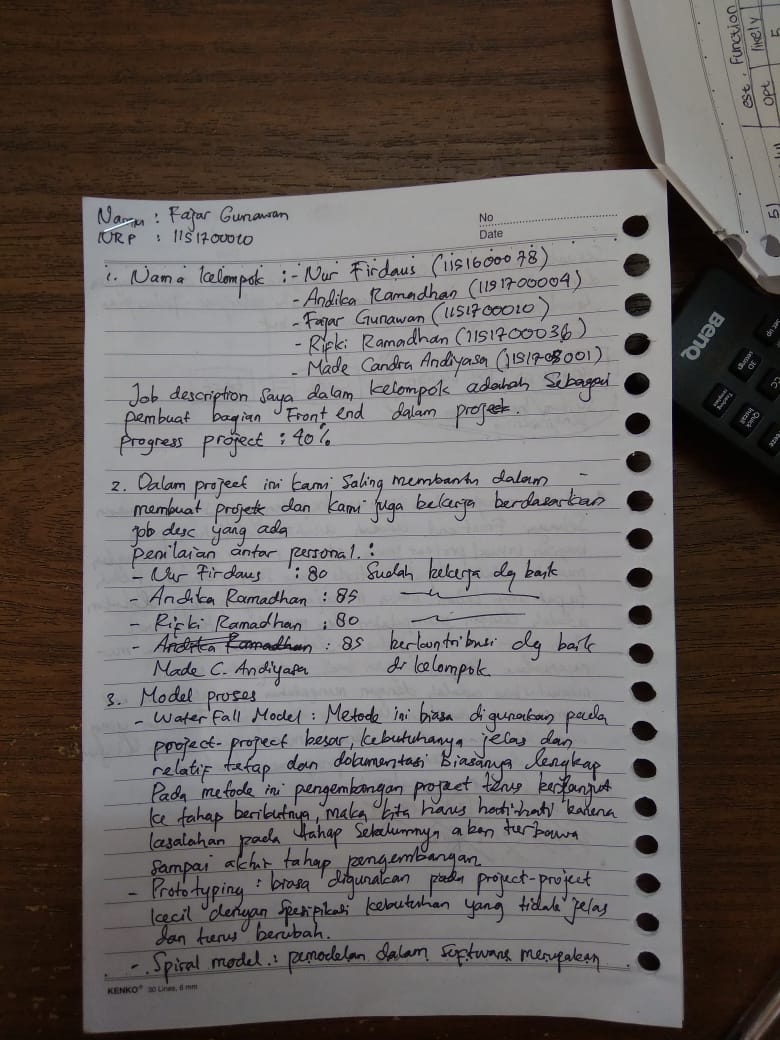 Nama : Fajar Gunawan
NRP : 1151700020
No
Date
1. Nama kelompok : - Nur Firdaus (1151600078)
- Andika Ramadhan (1151700004)
- Fajar Gunawan (1151700020)
- Rifki Ramadhan (1151700036)
- Made Candra Andiyasa (1151708001)
Job description saya dalam kelompok adahah Sebagai
pembuat bagian Front end dalam project.
progress project : 40%
2. Dalam project ini kami saling membantu dalam -
membuat projetk dan kami juga bekerja berdasarkan
job desc yang ada
penilaian antar personal. :
- Nur Firdaus : 80 Sudah bekerja dg baik
- Andika Ramadhan : 85
- Rifki Ramadhan : 80
- Andika Ramadhan : 85 berkontribusi dg baik
Made C. Andiyasa di kelompok.
3. Model proses
- WaterFall Model : Metode ini biasa digunakan pada
project-project besar, kebutuhanya jelas dan
relatif tetap dan dokumentasi Biasanya lengkap
Pada metode ini pengembangan project terus berlanjut
ke tahap beributnya, maka kita harus hati-hati karena
kasalahan pada tahap Sebelumnya akan terbawa
sampai akhir tahap pengembangan
- Prototyping : biasa digunakan pada project-project
kecil dengan Spesipikasi kebutuhan yang tidak jelas
dan terus berubah.
- Spiral model : pemodelan dalam Software merupakan
KENKO® 30 Lines, 6 mm
est. Function
Opt likely
5
5)
BenQ
3D
settings
Quick
Install